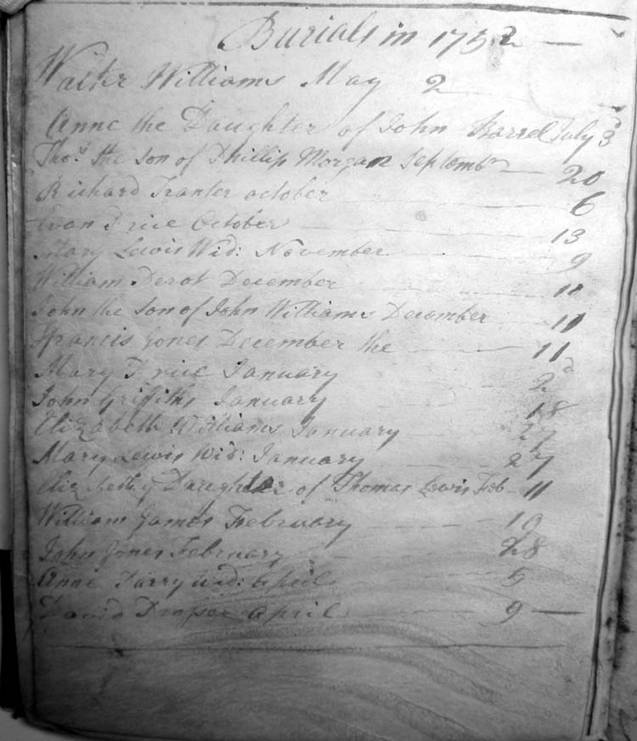 Burials in 1752
Walter Williams May 2
Anne the Daughter of John Harrel July 3d
Thos. the son of Phillip Morgan Septembr 20
Richard Tranter october 6
Evan Price October 13
Mary Lewis Wid: November 9
William December 11
John the son of John Williams December 11
Francis Jones December the 11
Mary Price January 2d
John Griffiths January 18
Elizabeth Williams January 27
Mary Lewis Wid: January 27
Eliz beth ye Daughter of Thomas Lewis Feb 11
William James February 19
John Jones February 28
Anne Parry wid: April 5
David Draper April 9